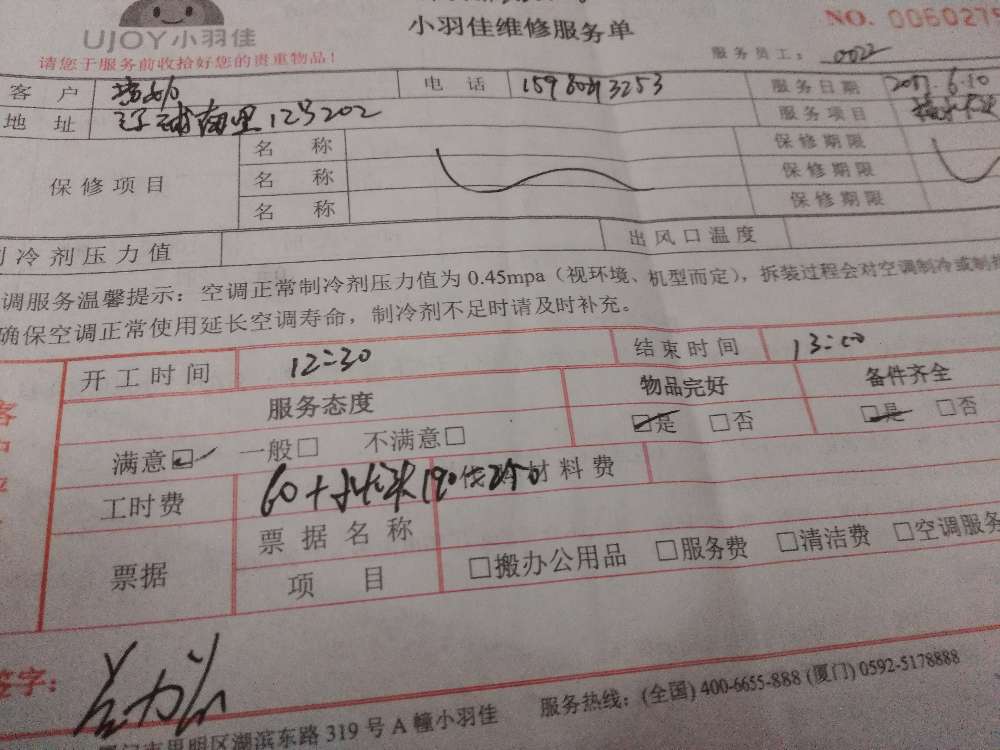 UJOY小羽佳
小羽佳维修服务单
NO. 0060275
请您于服务前收拾好您的贵重物品！
服务员工： 0022
客户 电话 服务日期 2017.6.10
地址 南里12号202 服务项目
保修项目 名称 保修期限
名称 保修期限
名称 保修期限
制冷剂压力值 出风口温度
调服务温馨提示：空调正常制冷剂压力值为 0.45mpa（视环境、机型而定），拆装过程会对空调制冷或制
确保空调正常使用延长空调寿命，制冷剂不足时请及时补充。
开工时间 12:30 结束时间 13:00
服务态度 物品完好 备件齐全
满意☑ 一般□ 不满意□ ☑是 □否 ☑是 □否
工时费 60+ 190 250 材料费
票据 票据名称
项目 □搬办公用品 □服务费 □清洁费 □空调服务
签字：
服务热线：(全国) 400-6655-888 (厦门) 0592-5178888
厦门市思明区湖滨东路 319 号 A 幢小羽佳